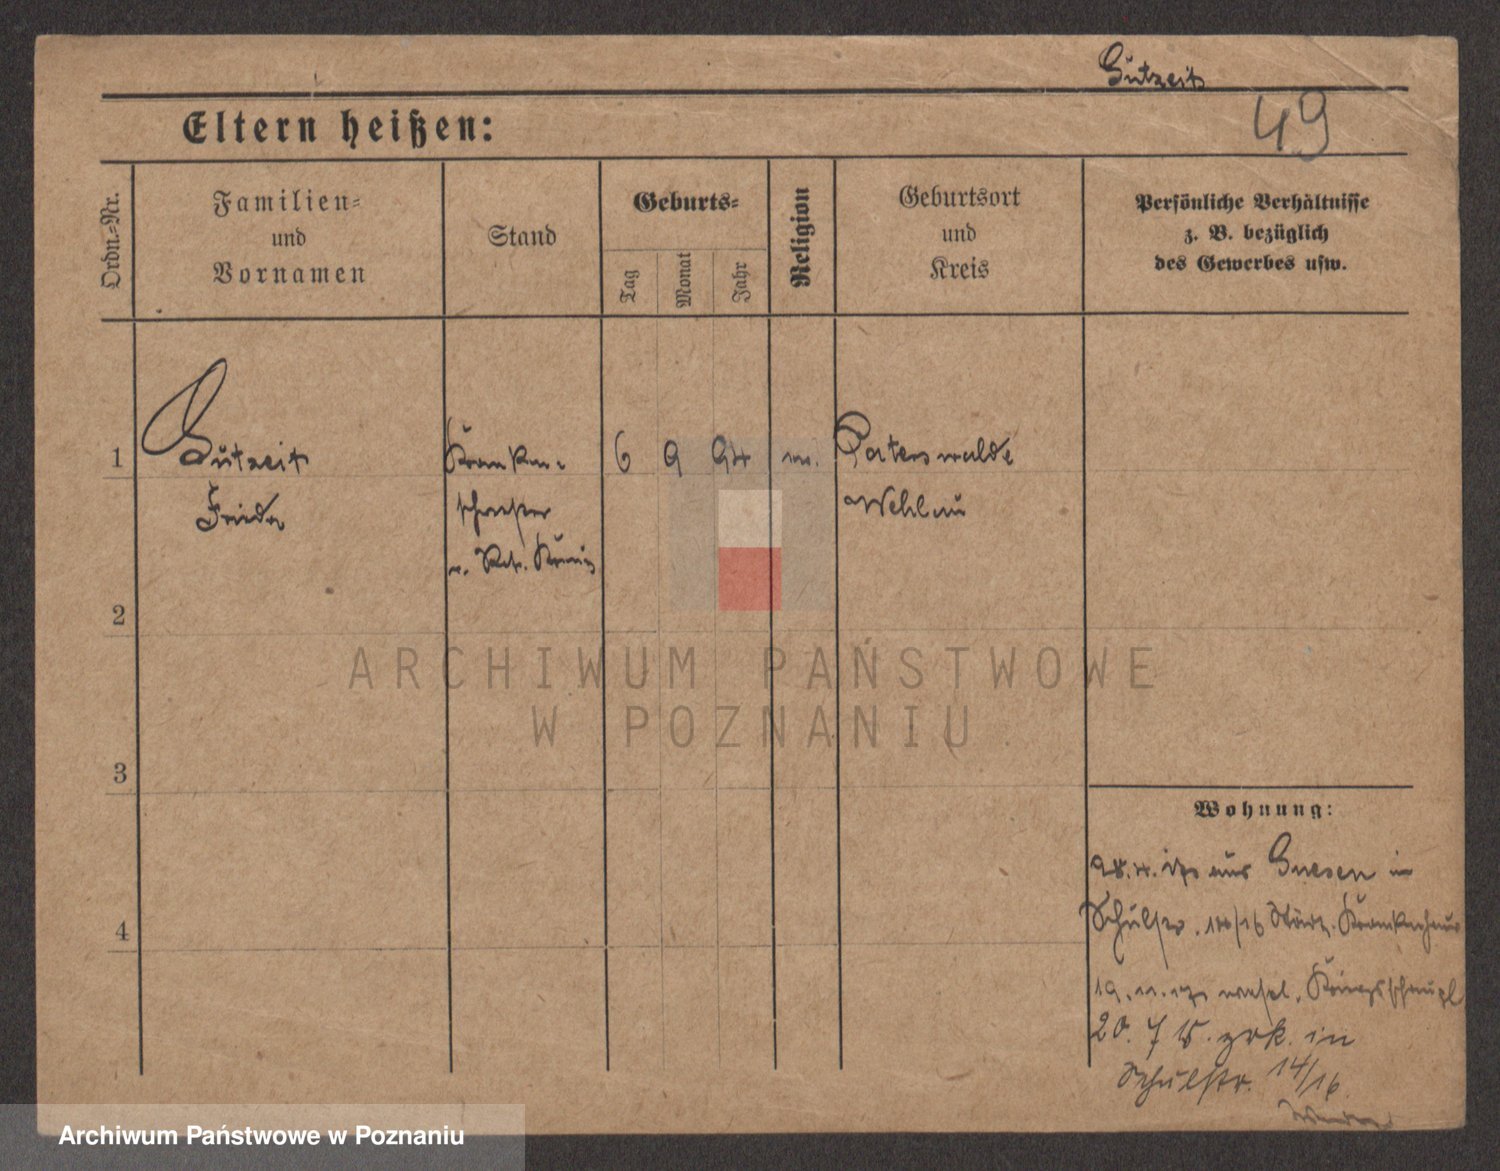 Gutzeit
49
Eltern heißen:
Ordn.-Nr.
Familien-
und
Vornamen
Stand
Geburts-
Tag
Monat
Jahr
Religion
Geburtsort
und
Kreis
Persönliche Verhältnisse
z. B. bezüglich
des Gewerbes usw.
1
Gutzeit
Kranken-
6 9 94
Paterswalde
Frieda
schwester
Wehlau
2
ARCHIWUM PAŃSTWOWE
W POZNANIU
3
Wohnung:
aus Gnesen in
Schulstr. 14/16 Städt. Krankenhaus
4
19. 11. westl. Kriegsschaupl
20. 7 15. zrk. in
Schulstr. 14/16
Archiwum Państwowe w Poznaniu